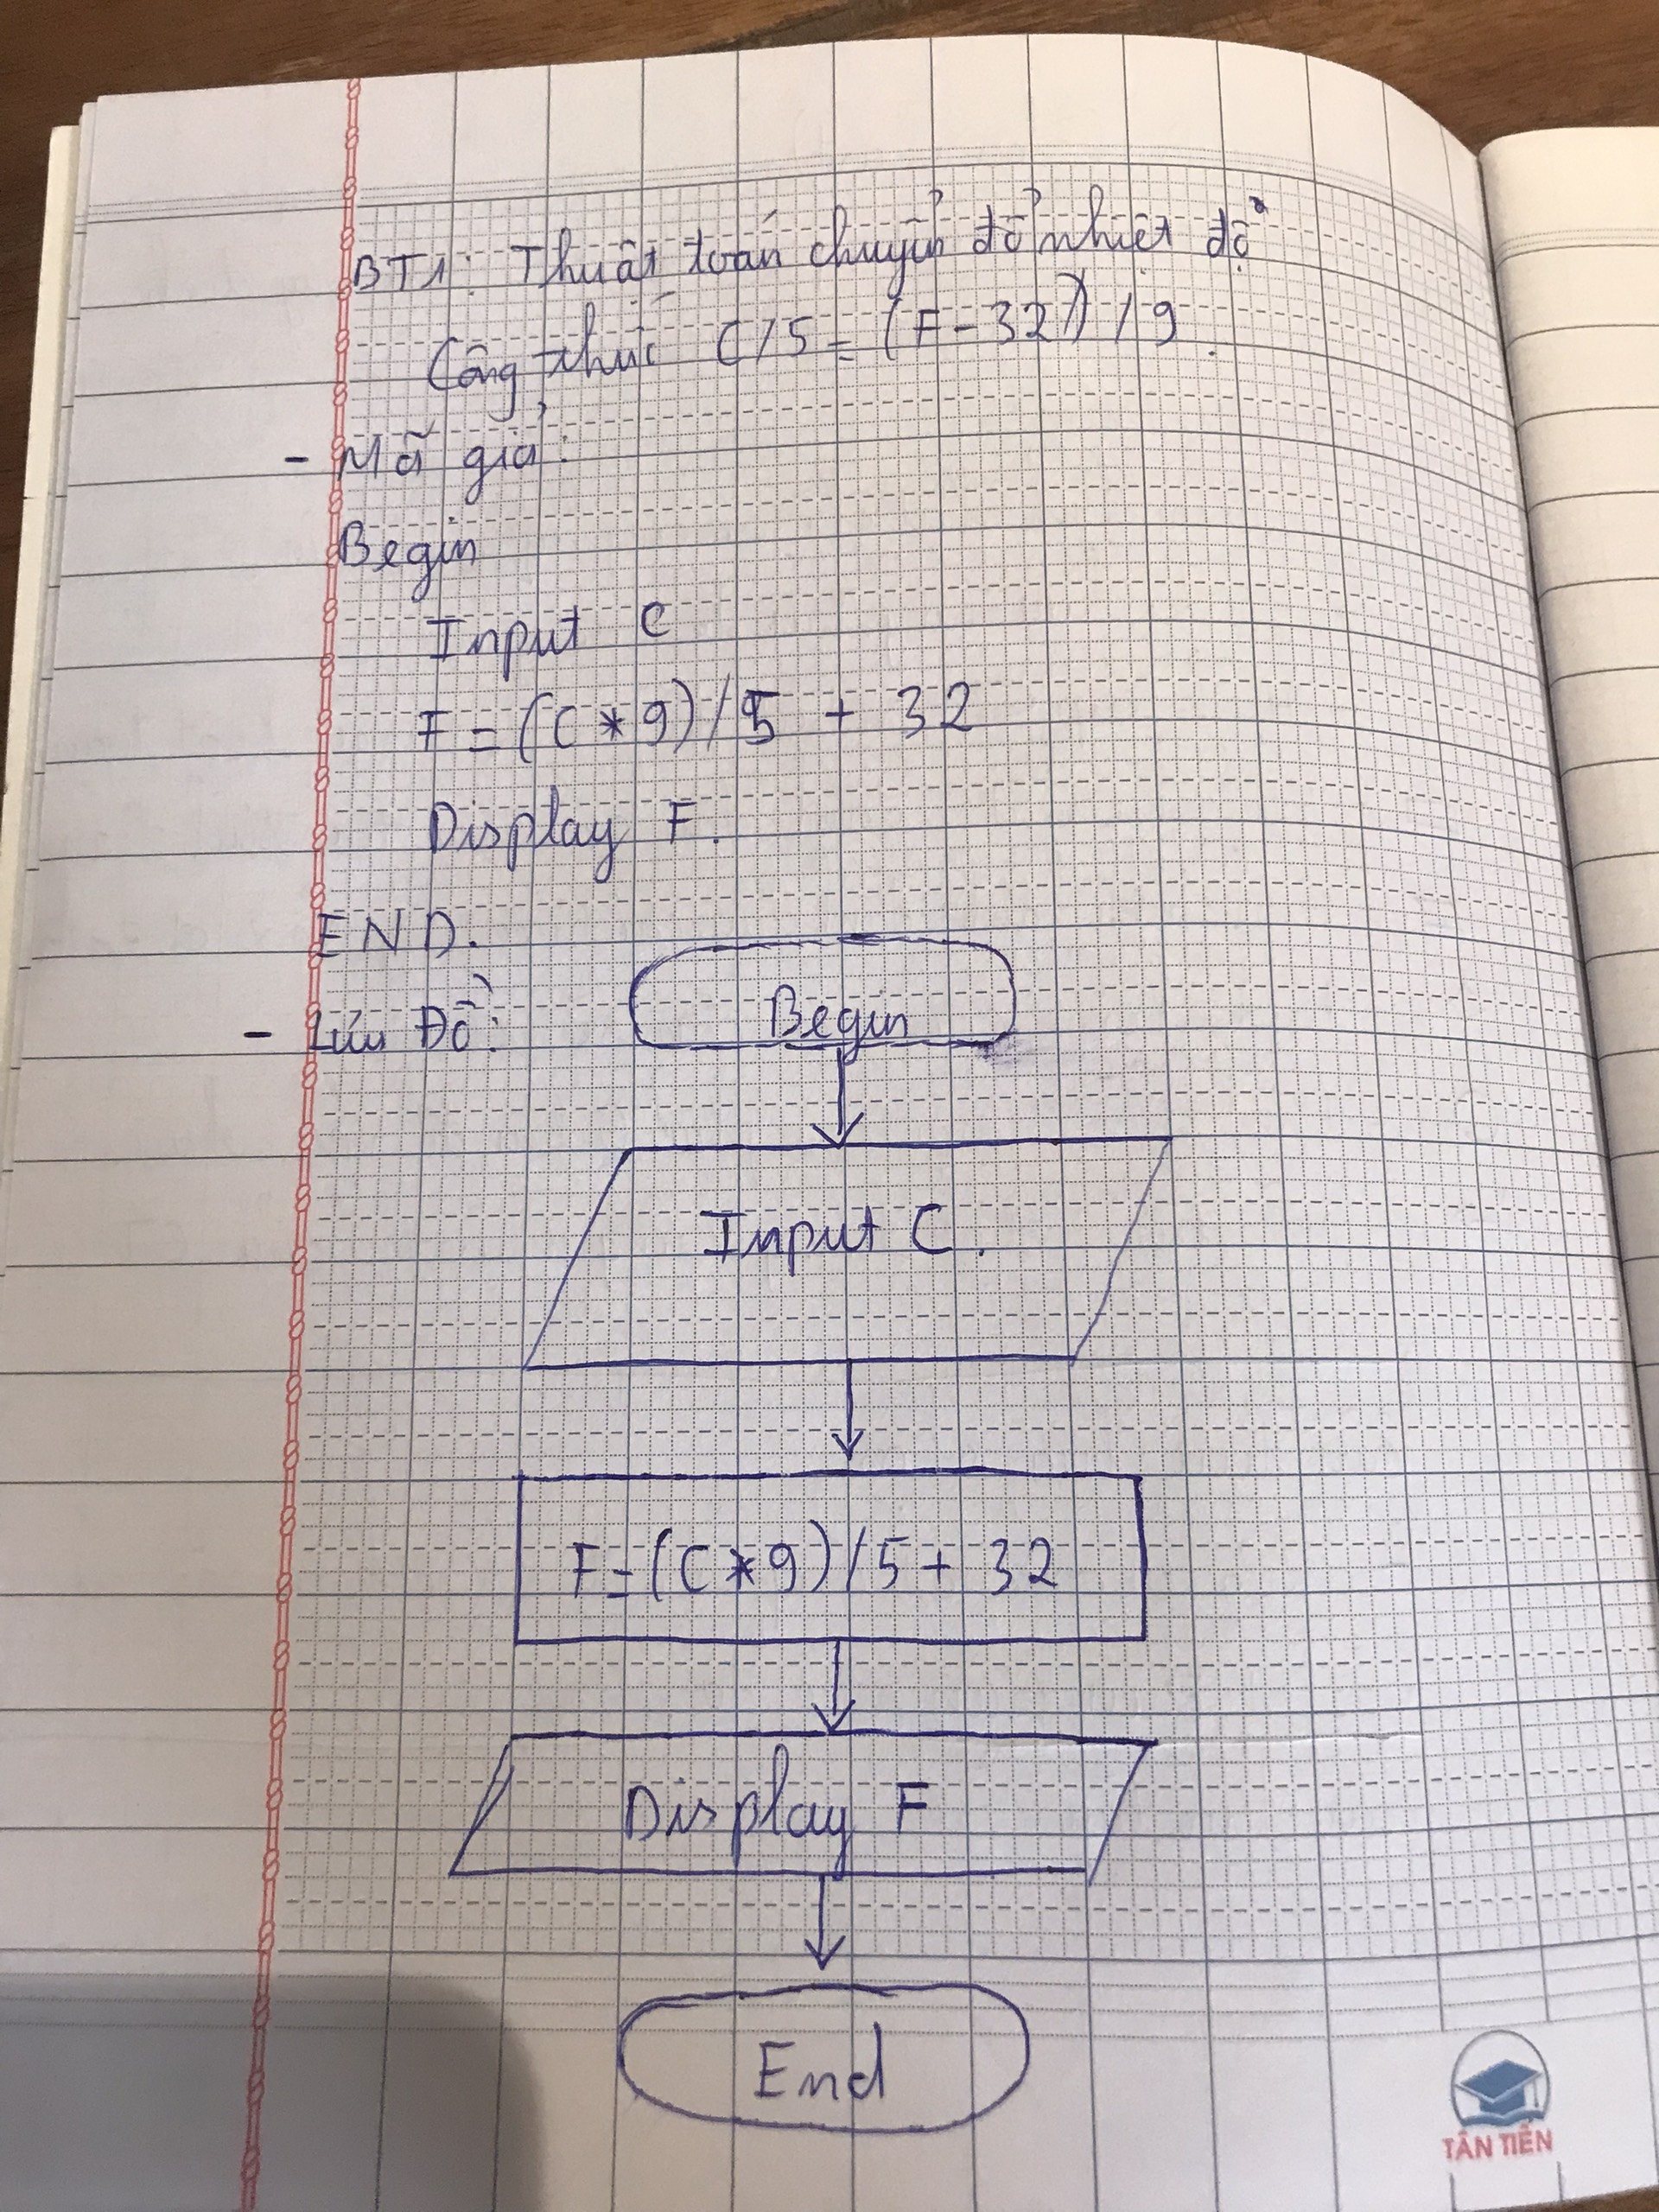 BT1: Thuật toán chuyển đổ nhiệt độ
Công thức C/5 = (F-32) / 9.
- Mã giả:
Begin
Input C
F = (C * 9) / 5 + 32
Display F.
END.
- Lưu Đồ:
Begin
Input C.
F = (C * 9) / 5 + 32
Display F
End
TÂN TIẾN